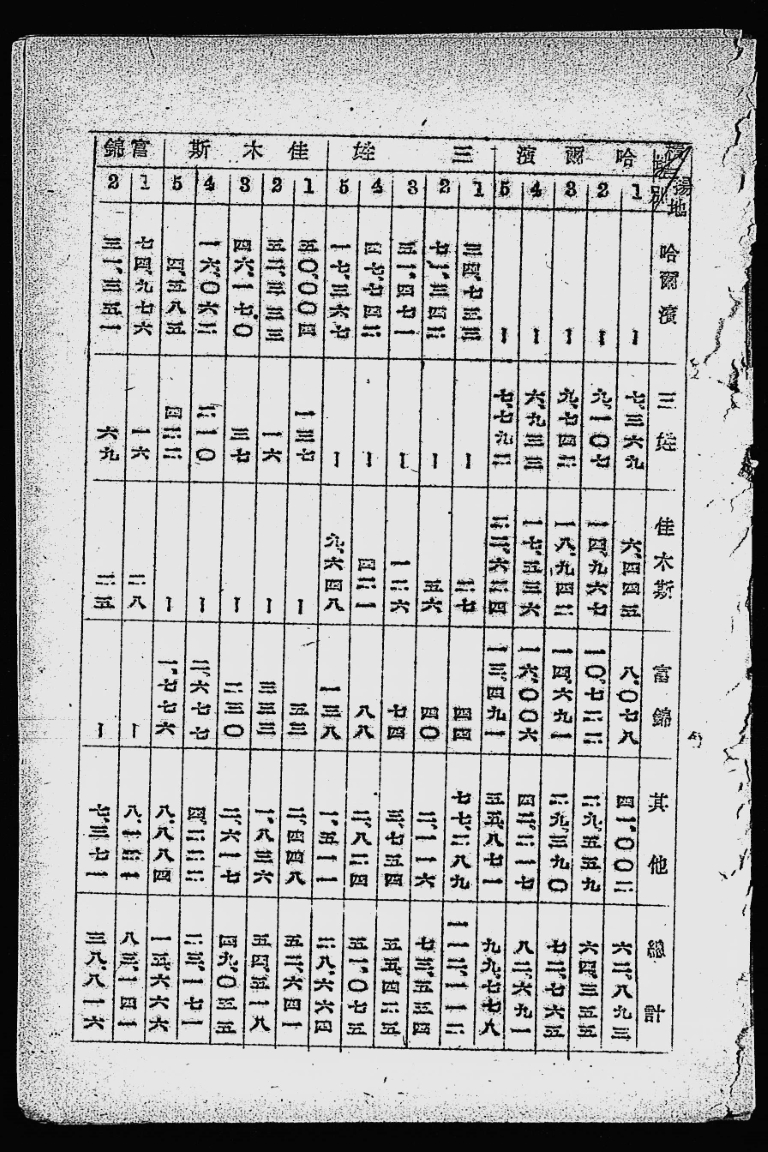 積揚地 哈爾濱 三姓 佳木斯 富錦 其他 總計
哈爾濱
1 ー 七、三六九 六、四四五 八、〇七八 四一、〇〇二 六二、八九三
2 ー 九、一〇七 一四、九六七 一〇、七二二 二九、五五九 六四、三五五
3 ー 九、七四二 一八、九四二 一四、六九一 二九、三九〇 七二、七六五
4 ー 六、九三三 一七、五三六 一六、〇〇六 四二、二一七 八二、六九一
5 ー 七、七九二 二二、六二四 一三、四九一 五五、八七一 九九、七七八
三姓
1 三四、七三三 ー 二七 四四 七七、二八九 一一二、一一二
2 七一、三四二 ー 五六 四〇 二、一一六 七三、五五四
3 五一、四七一 ー 一二六 七四 三、七五四 五五、四二五
4 四七、七四二 ー 四二一 八八 二、八二四 五一、〇七五
5 一七、三六七 ー 九、六四八 一三八 一、五一一 二八、六六四
佳木斯
1 五〇、〇〇四 一三七 ー 五三 二、四四八 五二、六四一
2 五二、三三三 一六 ー 三三三 一、八三六 五四、五一八
3 四六、一七〇 三七 ー 二三〇 二、六一七 四九、〇五五
4 一六、〇六二 二一〇 ー 二、六七七 四、二二二 二三、一七一
5 四、三八五 四二二 ー 一、七七六 八、八八四 一五、六六六
富錦
1 七四、九七六 一六 二八 ー 八、一二一 八三、一四一
2 三一、三五一 六九 二五 ー 七、三七一 三八、八一六